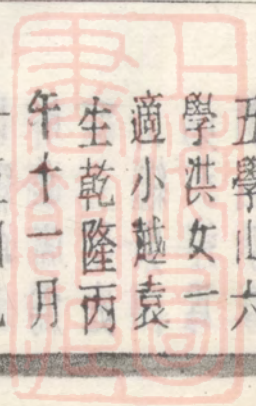 五學六
學洪女一
適小越袁
生乾隆丙
午十一月